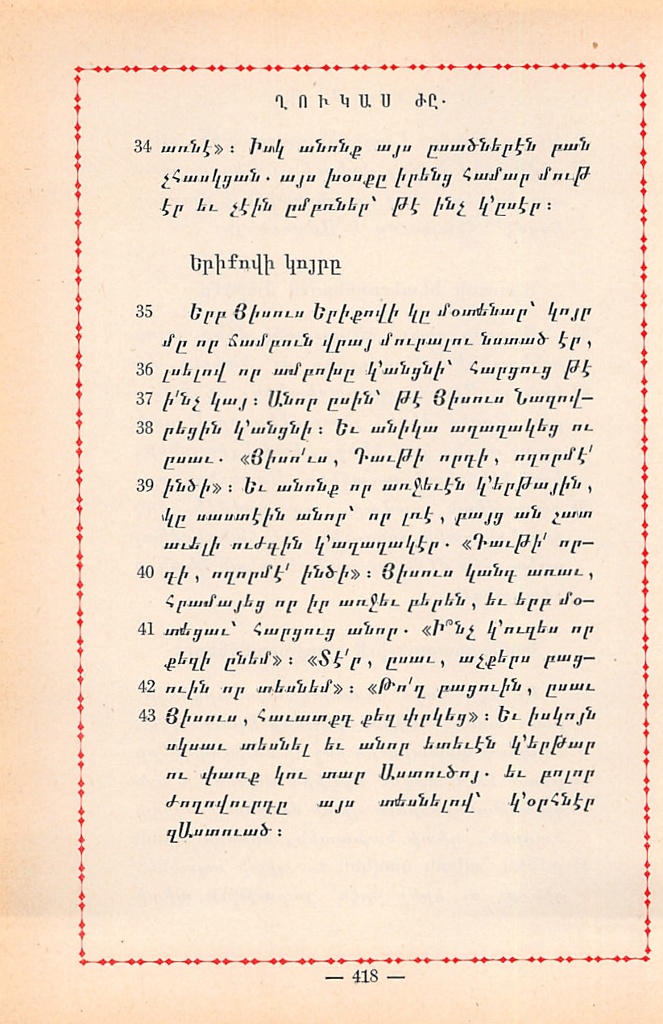 ՂՈՒԿԱՍ ԺԸ.
34 առնէ»։ Իսկ անոնք այս ըսածներէն բան
չհասկցան. այս խօսքը իրենց համար մութ
էր եւ չէին ըմբռներ՝ թէ ինչ կ՚ըսէր։
Երիքովի կոյրը
35 Երբ Յիսուս Երիքովի կը մօտենար՝ կոյր
մը որ ճամբուն վրայ մուրալու նստած էր,
36 լսելով որ ամբոխը կ՚անցնի՝ հարցուց թէ
37 ի՛նչ կայ։ Անոր ըսին՝ թէ Յիսուս Նազով–
38 րեցին կ՚անցնի։ Եւ անիկա աղաղակեց ու
ըսաւ. «Յիսո՛ւս, Դաւթի որդի, ողորմէ՛
39 ինծի»։ Եւ անոնք որ առջեւէն կ՚երթային,
կը սաստէին անոր՝ որ լռէ, բայց ան շատ
աւելի ուժգին կ՚աղաղակէր. «Դաւթի՛ որ–
40 դի, ողորմէ՛ ինծի»։ Յիսուս կանգ առաւ,
հրամայեց որ իր առջեւ բերեն, եւ երբ մօ–
41 տեցաւ՝ հարցուց անոր. «Ի՞նչ կ՚ուզես որ
քեզի ընեմ»։ «Տէ՛ր, ըսաւ, աչքերս բաց–
42 ուին որ տեսնեմ»։ «Թո՛ղ բացուին, ըսաւ
43 Յիսուս, հաւատքդ քեզ փրկեց»։ Եւ իսկոյն
սկսաւ տեսնել եւ անոր ետեւէն կ՚երթար
ու փառք կու տար Աստուծոյ. եւ բոլոր
ժողովուրդը այս տեսնելով՝ կ՚օրհնէր
զԱստուած։
— 418 —